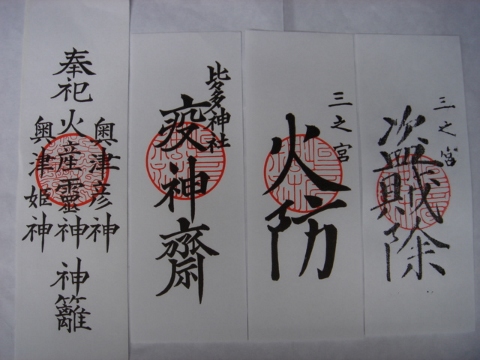 三之宮
盗賊除
三之宮
火防
比々多神社
疫神齋
奉祀
奥津彦神
火産靈神
奥津姫神
神籬